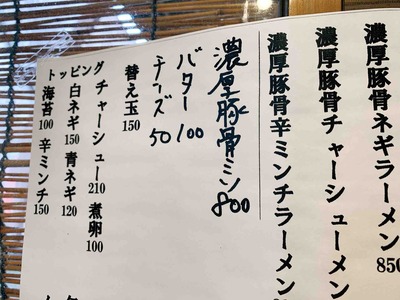 濃厚豚骨ネギラーメン 850
濃厚豚骨チャーシューメン
濃厚豚骨辛ミンチラーメン
濃厚豚骨ミン 800
バター 100
チーズ 50
替え玉 150
トッピング
チャーシュー 210 煮卵 100
白ネギ 150 青ネギ 120
海苔 100 辛ミンチ 150